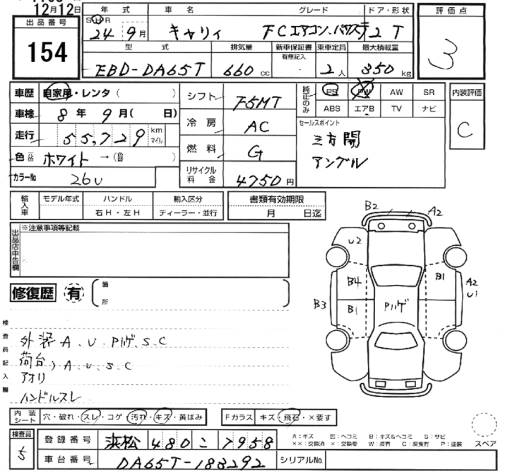 12月12日
出品番号
154
年式 車名 グレード ドア・形状
24年9月 キャリィ FCエアコン.パワステ 2 T
型式 排気量 新車保証書 乗車定員 最大積載量
有無記入
EBD-DA65T 660cc 2人 350kg
評価点
3
車歴 自家用・レンタ( )
車検 8年9月(日)
走行 55,729 km マイル
色 ホワイト→( )
カラーNo 26U
シフト F5MT
冷房 AC
燃料 G
リサイクル料金 4750円
純正のみ PS PW AW SR
ABS エアB TV ナビ
セールスポイント
三方開
アングル
内装評価
C
輸入車 モデル年式 ハンドル 輸入区分 書類有効期限
右H・左H ディーラー・並行 月 日迄
出品店申告欄
※注意事項等記載
修復歴 有 箇所
検査員記入欄
外装 A.U.Pハゲ.S.C
荷台)A.U.S.C
アオリ
ハンドルスレ
B2 A2
U2
B4 B1 A2
U1
B3 B1 Pハゲ
内装シート 穴・破れ・スレ・コゲ・汚れ・キズ・黄ばみ Fガラス キズ・飛石・×要す
スペア
検査員 5
登録番号 浜松 480 こ 7958
車台番号 DA65T-188292 シリアルNo